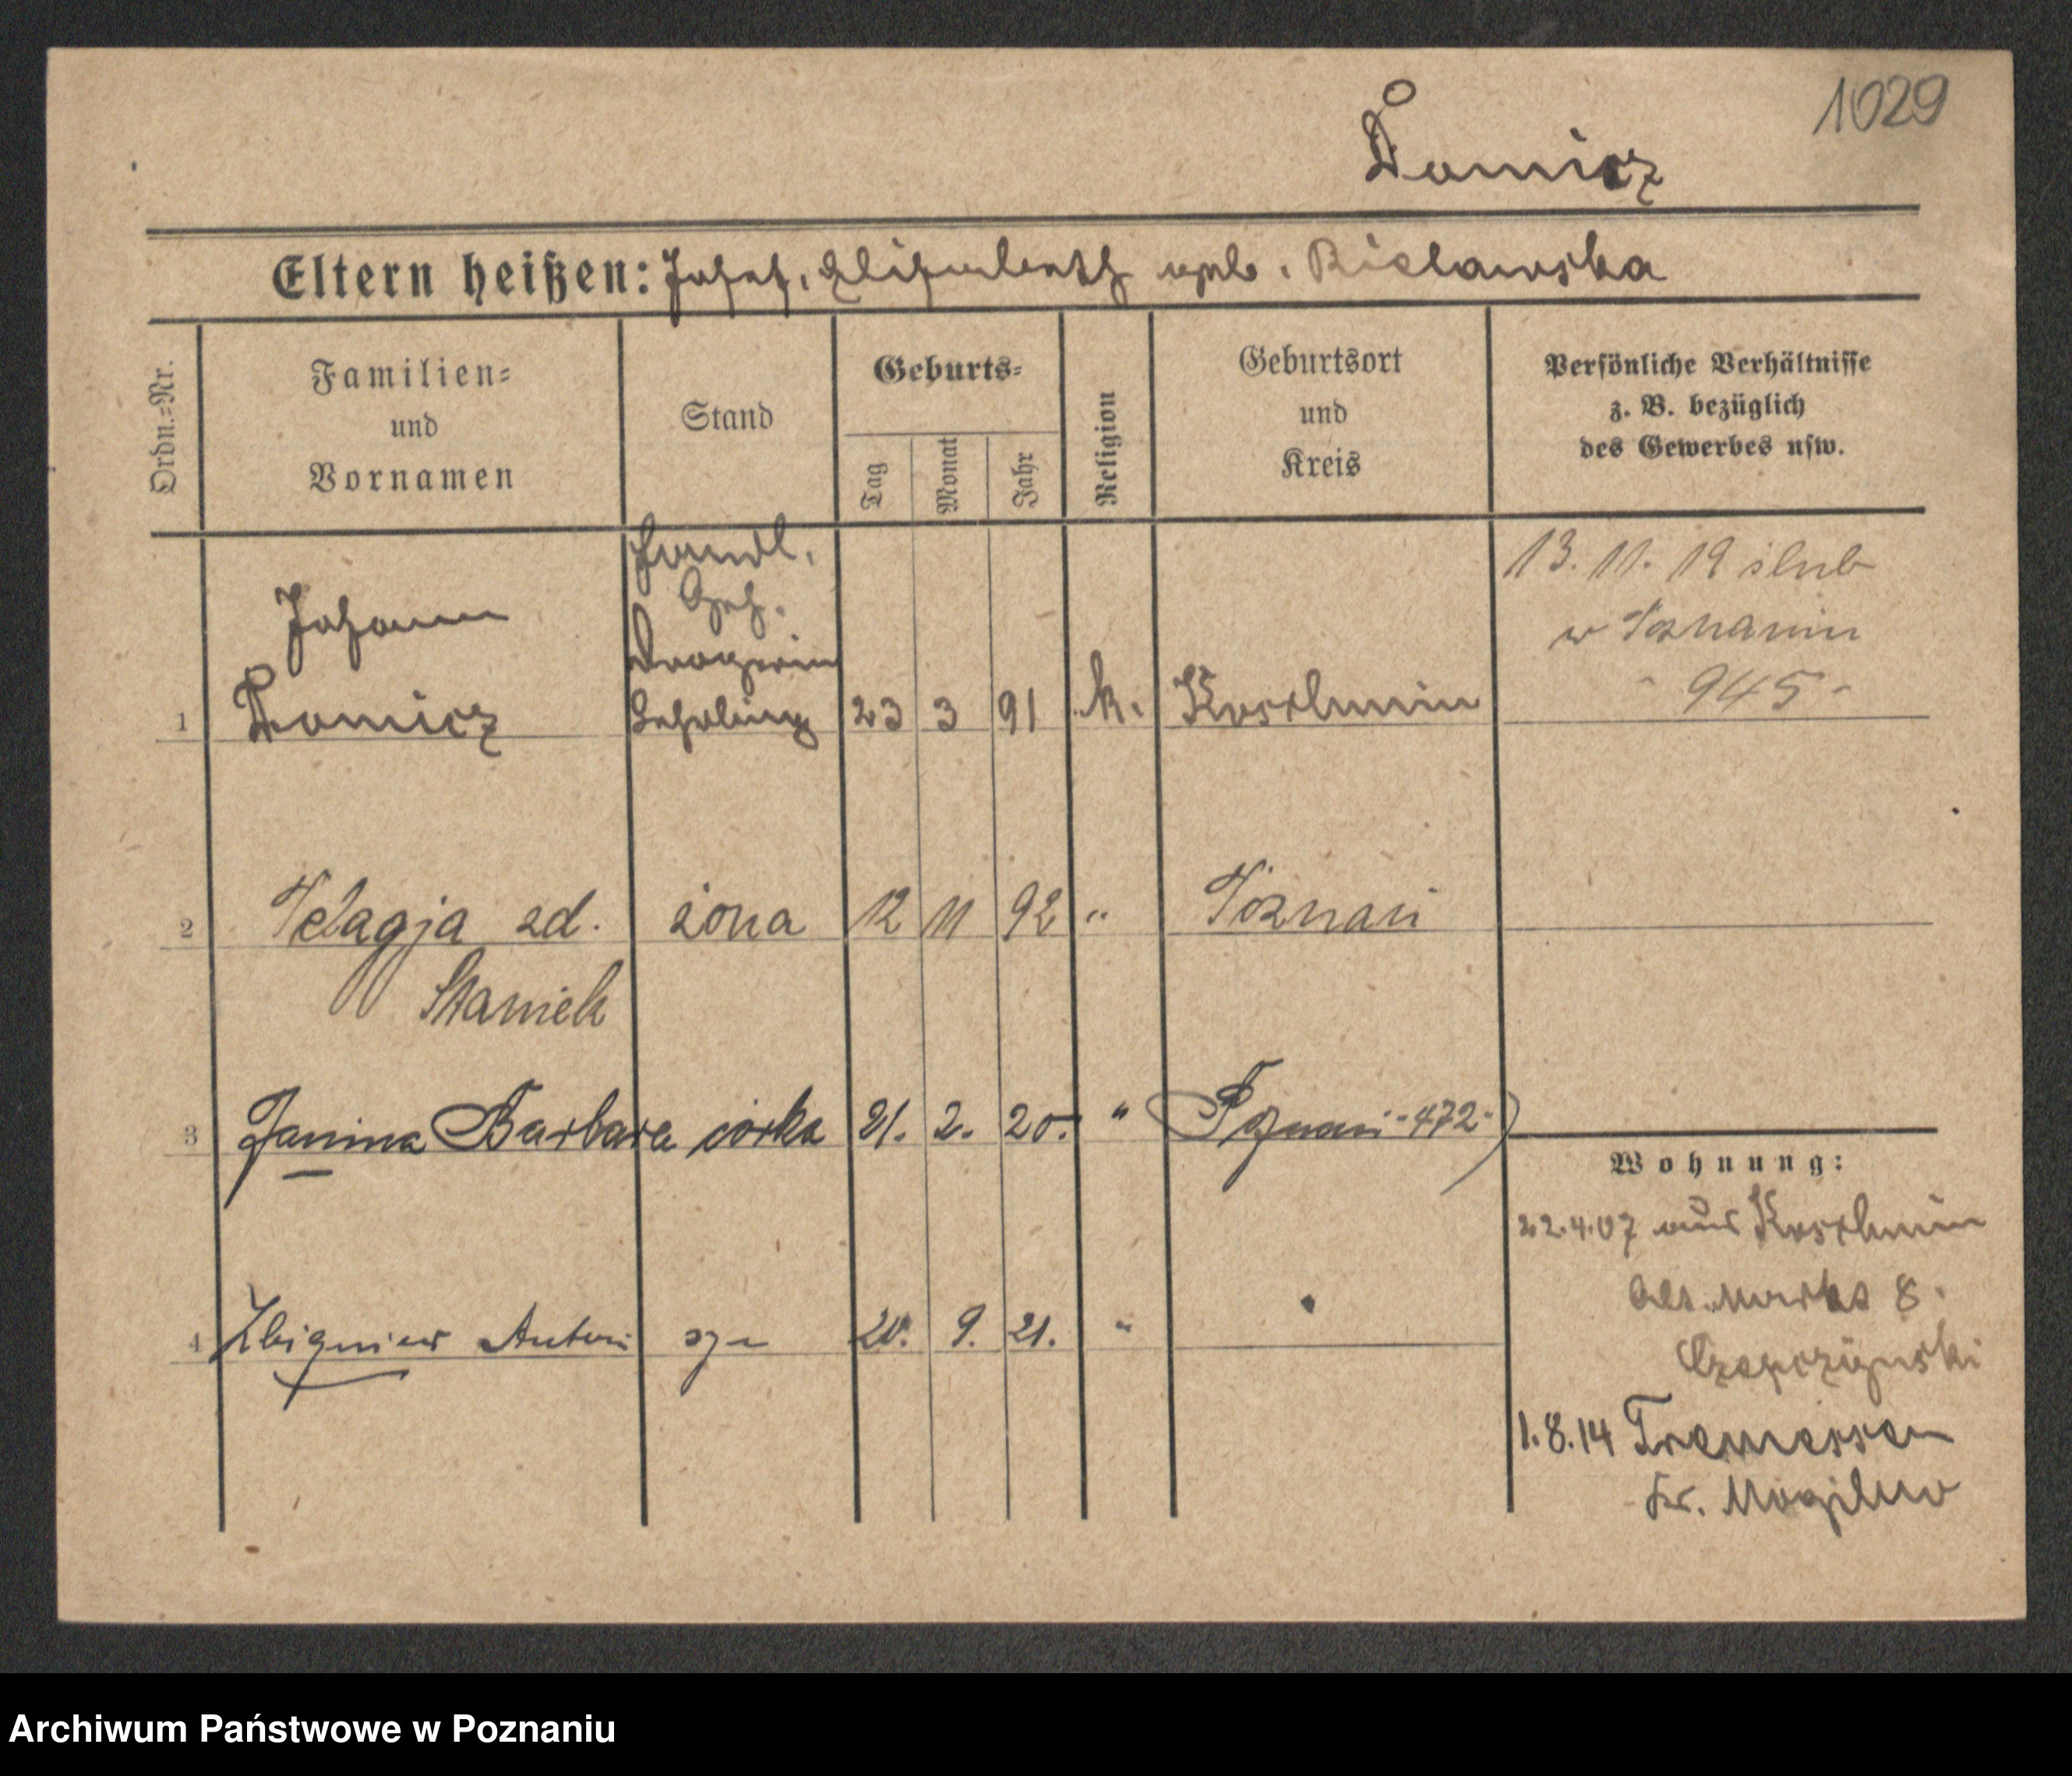 1029
Domicz
Eltern heißen: Josef, Elisabeth geb. Bielawska
Ordn.=Nr.
Familien=
und
Vornamen
Stand
Geburts=
Tag
Monat
Jahr
Religion
Geburtsort
und
Kreis
Persönliche Verhältnisse
z. B. bezüglich
des Gewerbes usw.
Handl.
Geh.
Johann
Drogerie
1 Domicz Lehrling 23 3 91 k. Koschmin
13. 11. 19 ślub
w Poznaniu
- 945 -
2 Pelagja zd. żona 12 11 92 " Poznań
Staniek
3 Janina Barbara córka 21. 2. 20. " (Poznań -472-)
4 Zbigniew Antoni syn 20. 9. 21. "
Wohnung:
22.4.07 aus Koschmin
Alt. Markt 8.
Czepczynski
1.8.14 Tremessen
Kr. Mogilno
Archiwum Państwowe w Poznaniu